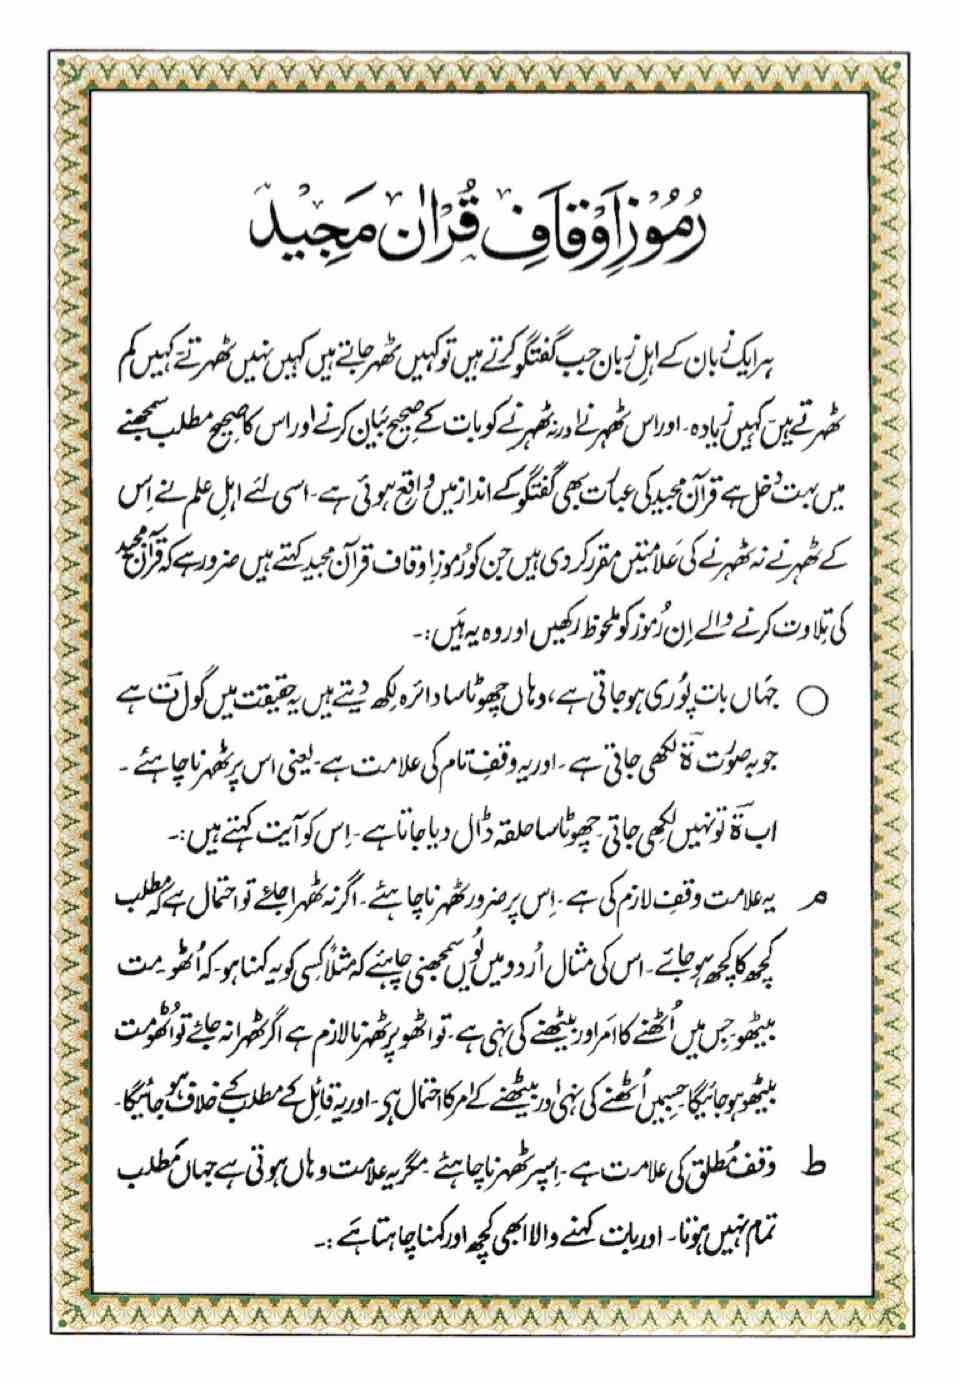 رُمُوْزِ اَوْقَافِ قُرْاٰن مَجِيْد
ہر ایک زبان کے اہلِ زبان جب گفتگو کرتے ہیں تو کہیں ٹھہر جاتے ہیں کہیں نہیں ٹھہرتے کہیں کم
ٹھہرتے ہیں کہیں زیادہ۔ اور اس ٹھہرنے اور نہ ٹھہرنے کو بات کے صحیح بیان کرنے اور اس کا صحیح مطلب سمجھنے
میں بہت دخل ہے قرآن مجید کی عبارت بھی گفتگو کے انداز میں واقع ہوئی ہے۔ اسی لئے اہلِ علم نے اِس
کے ٹھہرنے نہ ٹھہرنے کی علامتیں مقرر کر دی ہیں جن کو رُموزِ اوقاف قرآن مجید کہتے ہیں ضرور ہے کہ قرآن مجید
کی تلاوت کرنے والے اِن رُموز کو ملحوظ رکھیں اور وہ یہ ہیں:۔
○ جہاں بات پُوری ہو جاتی ہے، وہاں چھوٹا سا دائرہ لکھ دیتے ہیں یہ حقیقت میں گول ت ہے
جو بہ صُورت ۃ لکھی جاتی ہے۔ اور یہ وقفِ تام کی علامت ہے۔ یعنی اس پر ٹھہرنا چاہئے۔
اب ۃ تو نہیں لکھی جاتی۔ چھوٹا سا حلقہ ڈال دیا جاتا ہے۔ اِس کو آیت کہتے ہیں:۔
م یہ علامت وقفِ لازم کی ہے۔ اِس پر ضرور ٹھہرنا چاہئے۔ اگر نہ ٹھہرا جائے تو احتمال ہے کہ مطلب
کچھ کا کچھ ہو جائے۔ اس کی مثال اُردو میں یُوں سمجھنی چاہئے کہ مثلاً کسی کو یہ کہنا ہو۔ کہ اُٹھو۔ مت
بیٹھو۔ جس میں اُٹھنے کا امر اور بیٹھنے کی نہی ہے۔ تو اٹھو پر ٹھہرنا لازم ہے اگر ٹھہرا نہ جائے تو اُٹھو مت
بیٹھو ہو جائیگا جسمیں اُٹھنے کی نہی اور بیٹھنے کے امر کا احتمال ہی۔ اور یہ قائل کے مطلب کے خلاف ہو جائیگا۔
ط وقف مُطلق کی علامت ہے۔ اِسپر ٹھہرنا چاہئے۔ مگر یہ علامت وہاں ہوتی ہے جہاں مطلب
تمام نہیں ہوتا۔ اور بات کہنے والا ابھی کچھ اور کہنا چاہتا ہے:۔